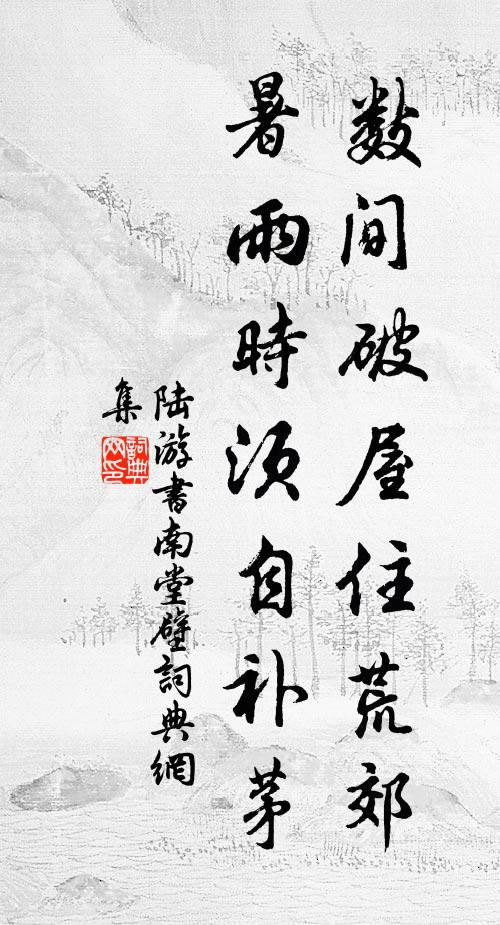 数间破屋住荒郊
暑雨時须自补茅
陆游书南堂壁詞典網
集
詞典网印